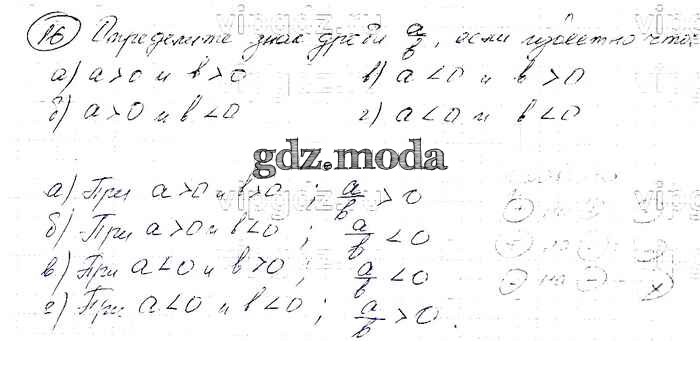 16 Определите знак дроби a/b, если известно что:
а) a>0 и b>0 в) a<0 и b>0
б) a>0 и b<0 г) a<0 и b<0
gdz.moda
а) При a>0 и b>0 ; a/b >0
б) При a>0 и b<0 ; a/b <0
в) При a<0 и b>0 ; a/b <0
г) При a<0 и b<0 ; a/b >0.